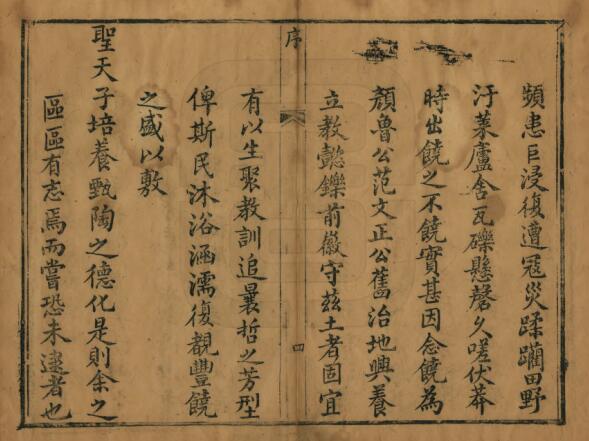 頻患巨浸復遭寇災蹂躪田野
汙萊廬舍瓦礫懸罄久嗟伏莽
時出饒之不饒實甚因念饒為
顏魯公范文正公舊治地興養
立教懿鑠前徽守茲土者固宜
序
四
有以生聚教訓追曩哲之芳型
俾斯民沐浴涵濡復覩豐饒
之盛以敷
聖天子培養甄陶之德化是則余之
區區有志焉而嘗恐未逮者也